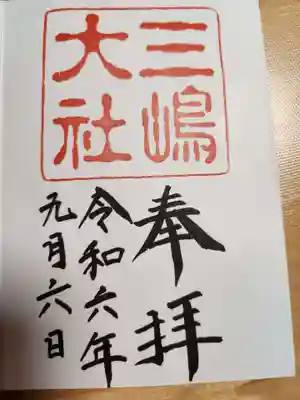 三嶋
大社
奉拝
令和六年
元月六日